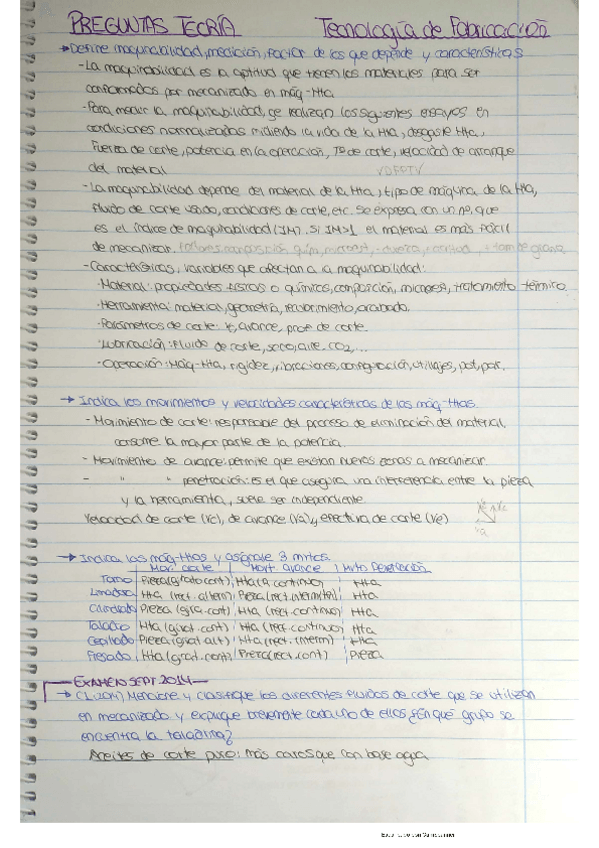 PREGUNTAS TEORÍA Tecnología de Fabricación
→ Define maquinabilidad, medición, factor de los que depende y características
- La maquinabilidad es la aptitud que tienen los materiales para ser
conformados por mecanizado en máq-Hta.
- Para medir la maquinabilidad, se realizan los siguientes ensayos en
condiciones normalizadas midiendo la vida de la Hta, desgaste Hta,
fuerza de corte, potencia en la operación, Tª de corte, velocidad de arranque
del material VDFPTV
- La maquinabilidad depende del material de la Hta, tipo de máquina de la Hta,
fluido de corte usado, condiciones de corte, etc. Se expresa con un nº, que
es el índice de maquinabilidad (IM). Si IM>1 el material es más fácil
de mecanizar.
- Características, variables que afectan a la maquinabilidad:
· Material: propiedades físicas o químicas, composición, microest, tratamiento térmico
· Herramienta: material, geometría, recubrimiento, acabado.
· Parámetros de corte: avance, prof de corte.
· Lubricación: Fluido de corte, seco, aire, CO2,...
· Operación: Máq-Hta, rigidez, vibraciones, configuración, utillajes, pot,
→ Indica los movimientos y velocidades características de las máq-Htas.
- Movimiento de corte: responsable del proceso de eliminación del material,
consume la mayor parte de la potencia.
- Movimiento de avance: permite que existan nuevas zonas a mecanizar.
- " " penetración: es el que asegura una interferencia entre la pieza
y la herramienta, suele ser independiente.
Velocidad de corte (Vc), de avance (Va) y efectiva de corte (Ve)
→ Indica las máq-Htas y asígnale 3 mvtos.
Mov. corte Movt. avance Mvto Penetración
Torno Pieza (girato cont) Hta (a continuo) Hta
Limadora Hta (rect. altern) Pieza (rect. intermite) Hta
Cilindrado Pieza (gira. cont) Hta (rect. continuo) Hta
Taladro Hta (girat. cont) Hta (rect. continuo) Hta
Cepillado Pieza (girat alt) Hta (rect. interm) Hta
Fresado Hta (girat. cont) Pieza (rect. cont) Pieza
— EXAMEN SEPT. 2014 —
→ C1. 2014) Mencione y clasifique los diferentes fluidos de corte que se utilizan
en mecanizado y explique brevemente cada uno de ellos ¿En qué grupo se
encuentra la taladrina?
Aceites de corte puro: más caros que con base agua